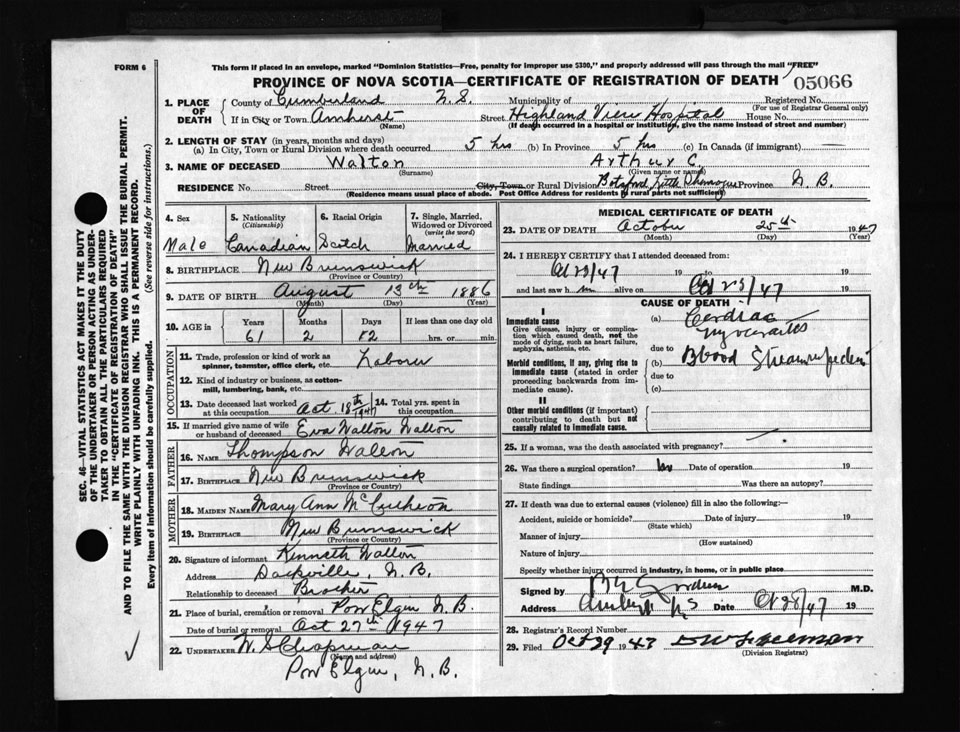 FORM 6
This form if placed in an envelope, marked "Dominion Statistics—Free, penalty for improper use $300," and properly addressed will pass through the mail "FREE"
PROVINCE OF NOVA SCOTIA—CERTIFICATE OF REGISTRATION OF DEATH 05066
1. PLACE OF DEATH
County of Cumberland N.S. Municipality of Registered No.
(For use of Registrar General only)
If in City or Town Amherst Street Highland View Hospital House No.
(Name) (If death occurred in a hospital or institution, give the name instead of street and number)
2. LENGTH OF STAY (in years, months and days)
(a) In City, Town or Rural Division where death occurred 5 hrs (b) In Province 5 hrs (c) In Canada (if immigrant) —
3. NAME OF DECEASED Walton Arthur C.
(Surname) (Given name or names)
RESIDENCE No. Street City, Town or Rural Division Botsford Little Shemogue Province N.B.
(Residence means usual place of abode. Post Office Address for residents of rural parts not sufficient)
4. Sex
Male
5. Nationality
(Citizenship)
Canadian
6. Racial Origin
Scotch
7. Single, Married, Widowed or Divorced
(write the word)
Married
8. BIRTHPLACE New Brunswick
(Province or Country)
9. DATE OF BIRTH August 13th 1886
(Month) (Day) (Year)
10. AGE in
Years Months Days If less than one day old
61 2 12 hrs. or min.
OCCUPATION
11. Trade, profession or kind of work as spinner, teamster, office clerk, etc. Laborer
12. Kind of industry or business, as cotton-mill, lumbering, bank, etc.
13. Date deceased last worked at this occupation Oct 18th 1947
14. Total yrs. spent in this occupation
15. If married give name of wife or husband of deceased Eva Walton Walton
FATHER
16. NAME Thompson Walton
17. BIRTHPLACE New Brunswick
(Province or Country)
MOTHER
18. MAIDEN NAME Mary Ann McCucheon
19. BIRTHPLACE New Brunswick
(Province or Country)
20. Signature of informant Kenneth Walton
Address Sackville, N.B.
Relationship to deceased Brother
21. Place of burial, cremation or removal Port Elgin N.B.
Date of burial or removal Oct 27th 1947
22. UNDERTAKER W. S. Chapman
(Name and address)
Port Elgin, N.B.
MEDICAL CERTIFICATE OF DEATH
23. DATE OF DEATH October 25th 1947
(Month) (Day) (Year)
24. I HEREBY CERTIFY that I attended deceased from:
19 to
and last saw h im alive on 19
CAUSE OF DEATH
I
Immediate cause
Give disease, injury or complication which caused death, not the mode of dying, such as heart failure, asphyxia, asthenia, etc.
(a) Cardiac
Myocarditis
due to
Morbid conditions, if any, giving rise to immediate cause (stated in order proceeding backwards from immediate cause).
(b) Blood Stream
due to
(c)
II
Other morbid conditions (if important) contributing to death but not causally related to immediate cause.
25. If a woman, was the death associated with pregnancy?
26. Was there a surgical operation? Date of operation 19
State findings Was there an autopsy?
27. If death was due to external causes (violence) fill in also the following:—
Accident, suicide or homicide? Date of injury 19
(State which)
Manner of injury
(How sustained)
Nature of injury
Specify whether injury occurred in industry, in home, or in public place
Signed by M.D.
Address Date Oct 28/47 19
28. Registrar's Record Number
29. Filed Oct 29 1947
(Division Registrar)
SEC. 46—VITAL STATISTICS ACT MAKES IT THE DUTY OF THE UNDERTAKER OR PERSON ACTING AS UNDERTAKER TO OBTAIN ALL THE PARTICULARS REQUIRED IN THE "CERTIFICATE OF REGISTRATION OF DEATH" AND TO FILE THE SAME WITH THE DIVISION REGISTRAR WHO SHALL ISSUE THE BURIAL PERMIT.
WRITE PLAINLY WITH UNFADING INK. THIS IS A PERMANENT RECORD.
Every item of information should be carefully supplied. (See reverse side for instructions.)